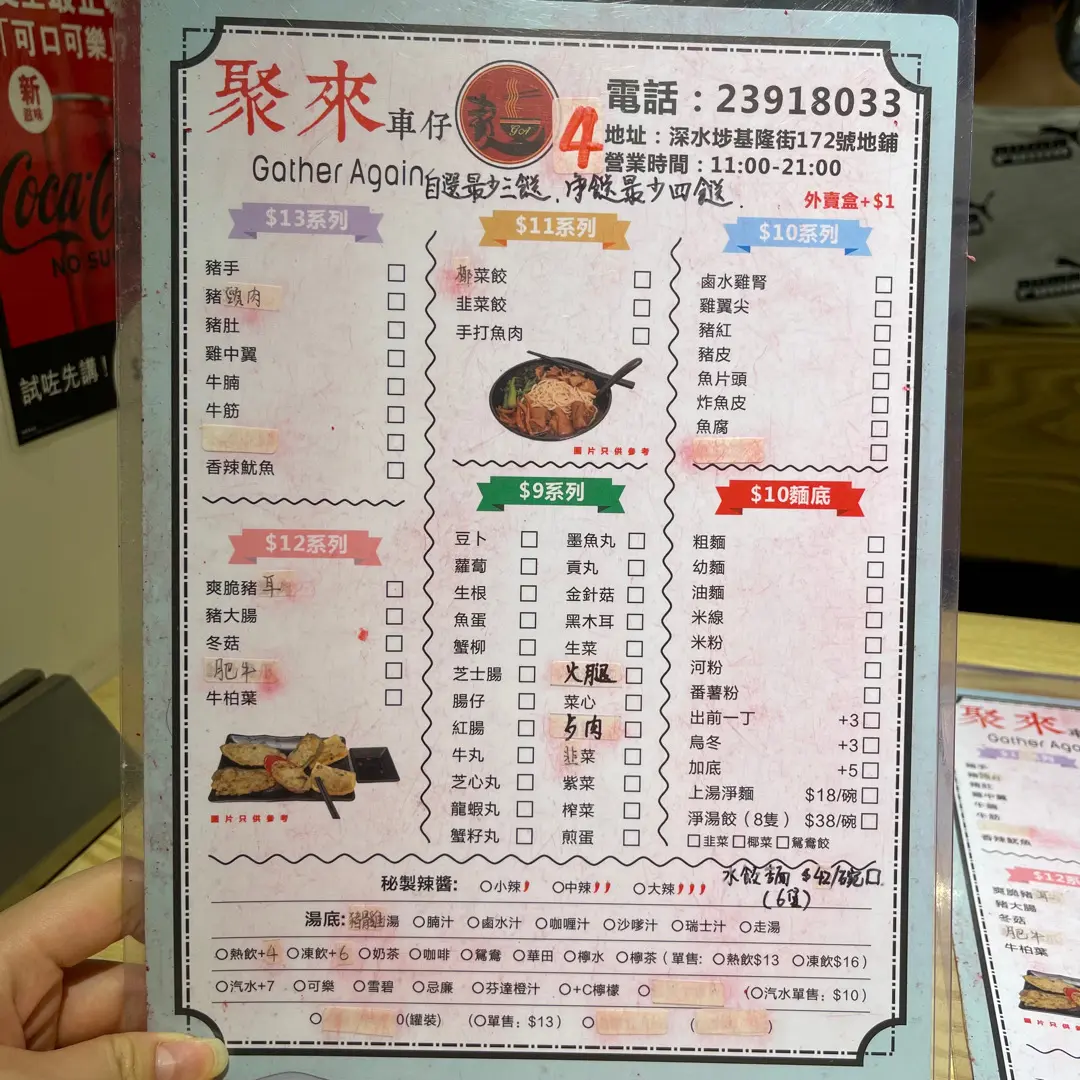 「可口可樂」?
新
滋味
Coca-C
NO SU
試咗先講!
聚來車仔
Gather Again
4
電話:23918033
地址:深水埗基隆街172號地鋪
營業時間:11:00-21:00
自選最少三餸,淨餸最少四餸.
外賣盒+$1
$13系列
豬手
豬頸肉
豬肚
雞中翼
牛腩
牛筋
香辣魷魚
$12系列
爽脆豬耳
豬大腸
冬菇
肥牛
牛柏葉
圖片只供參考
$11系列
椰菜餃
韭菜餃
手打魚肉
圖片只供參考
$10系列
鹵水雞腎
雞翼尖
豬紅
豬皮
魚片頭
炸魚皮
魚腐
$9系列
豆卜 墨魚丸
蘿蔔 貢丸
生根 金針菇
魚蛋 黑木耳
蟹柳 生菜
芝士腸 火腿
腸仔 菜心
紅腸 肉
牛丸 韭菜
芝心丸 紫菜
龍蝦丸 榨菜
蟹籽丸 煎蛋
$10麵底
粗麵
幼麵
油麵
米線
米粉
河粉
番薯粉
出前一丁 +3
烏冬 +3
加底 +5
上湯淨麵 $18/碗
淨湯餃(8隻) $38/碗
韭菜 椰菜 鴛鴦餃
水餃麵 $42/碗
(6隻)
秘製辣醬: 小辣 中辣 大辣
湯底: 湯 腩汁 鹵水汁 咖喱汁 沙嗲汁 瑞士汁 走湯
熱飲+4 凍飲+6 奶茶 咖啡 鴛鴦 華田 檸水 檸茶(單售: 熱飲$13 凍飲$16)
汽水+7 可樂 雪碧 忌廉 芬達橙汁 +C檸檬 (汽水單售:$10)
0(罐裝) (單售:$13) ( )
聚來車
Gather Aga
豬手
豬肚
雞中翼
牛腩
牛筋
香辣魷魚
$12
爽脆豬耳
豬大腸
冬菇
肥牛
牛柏葉
圖片只供